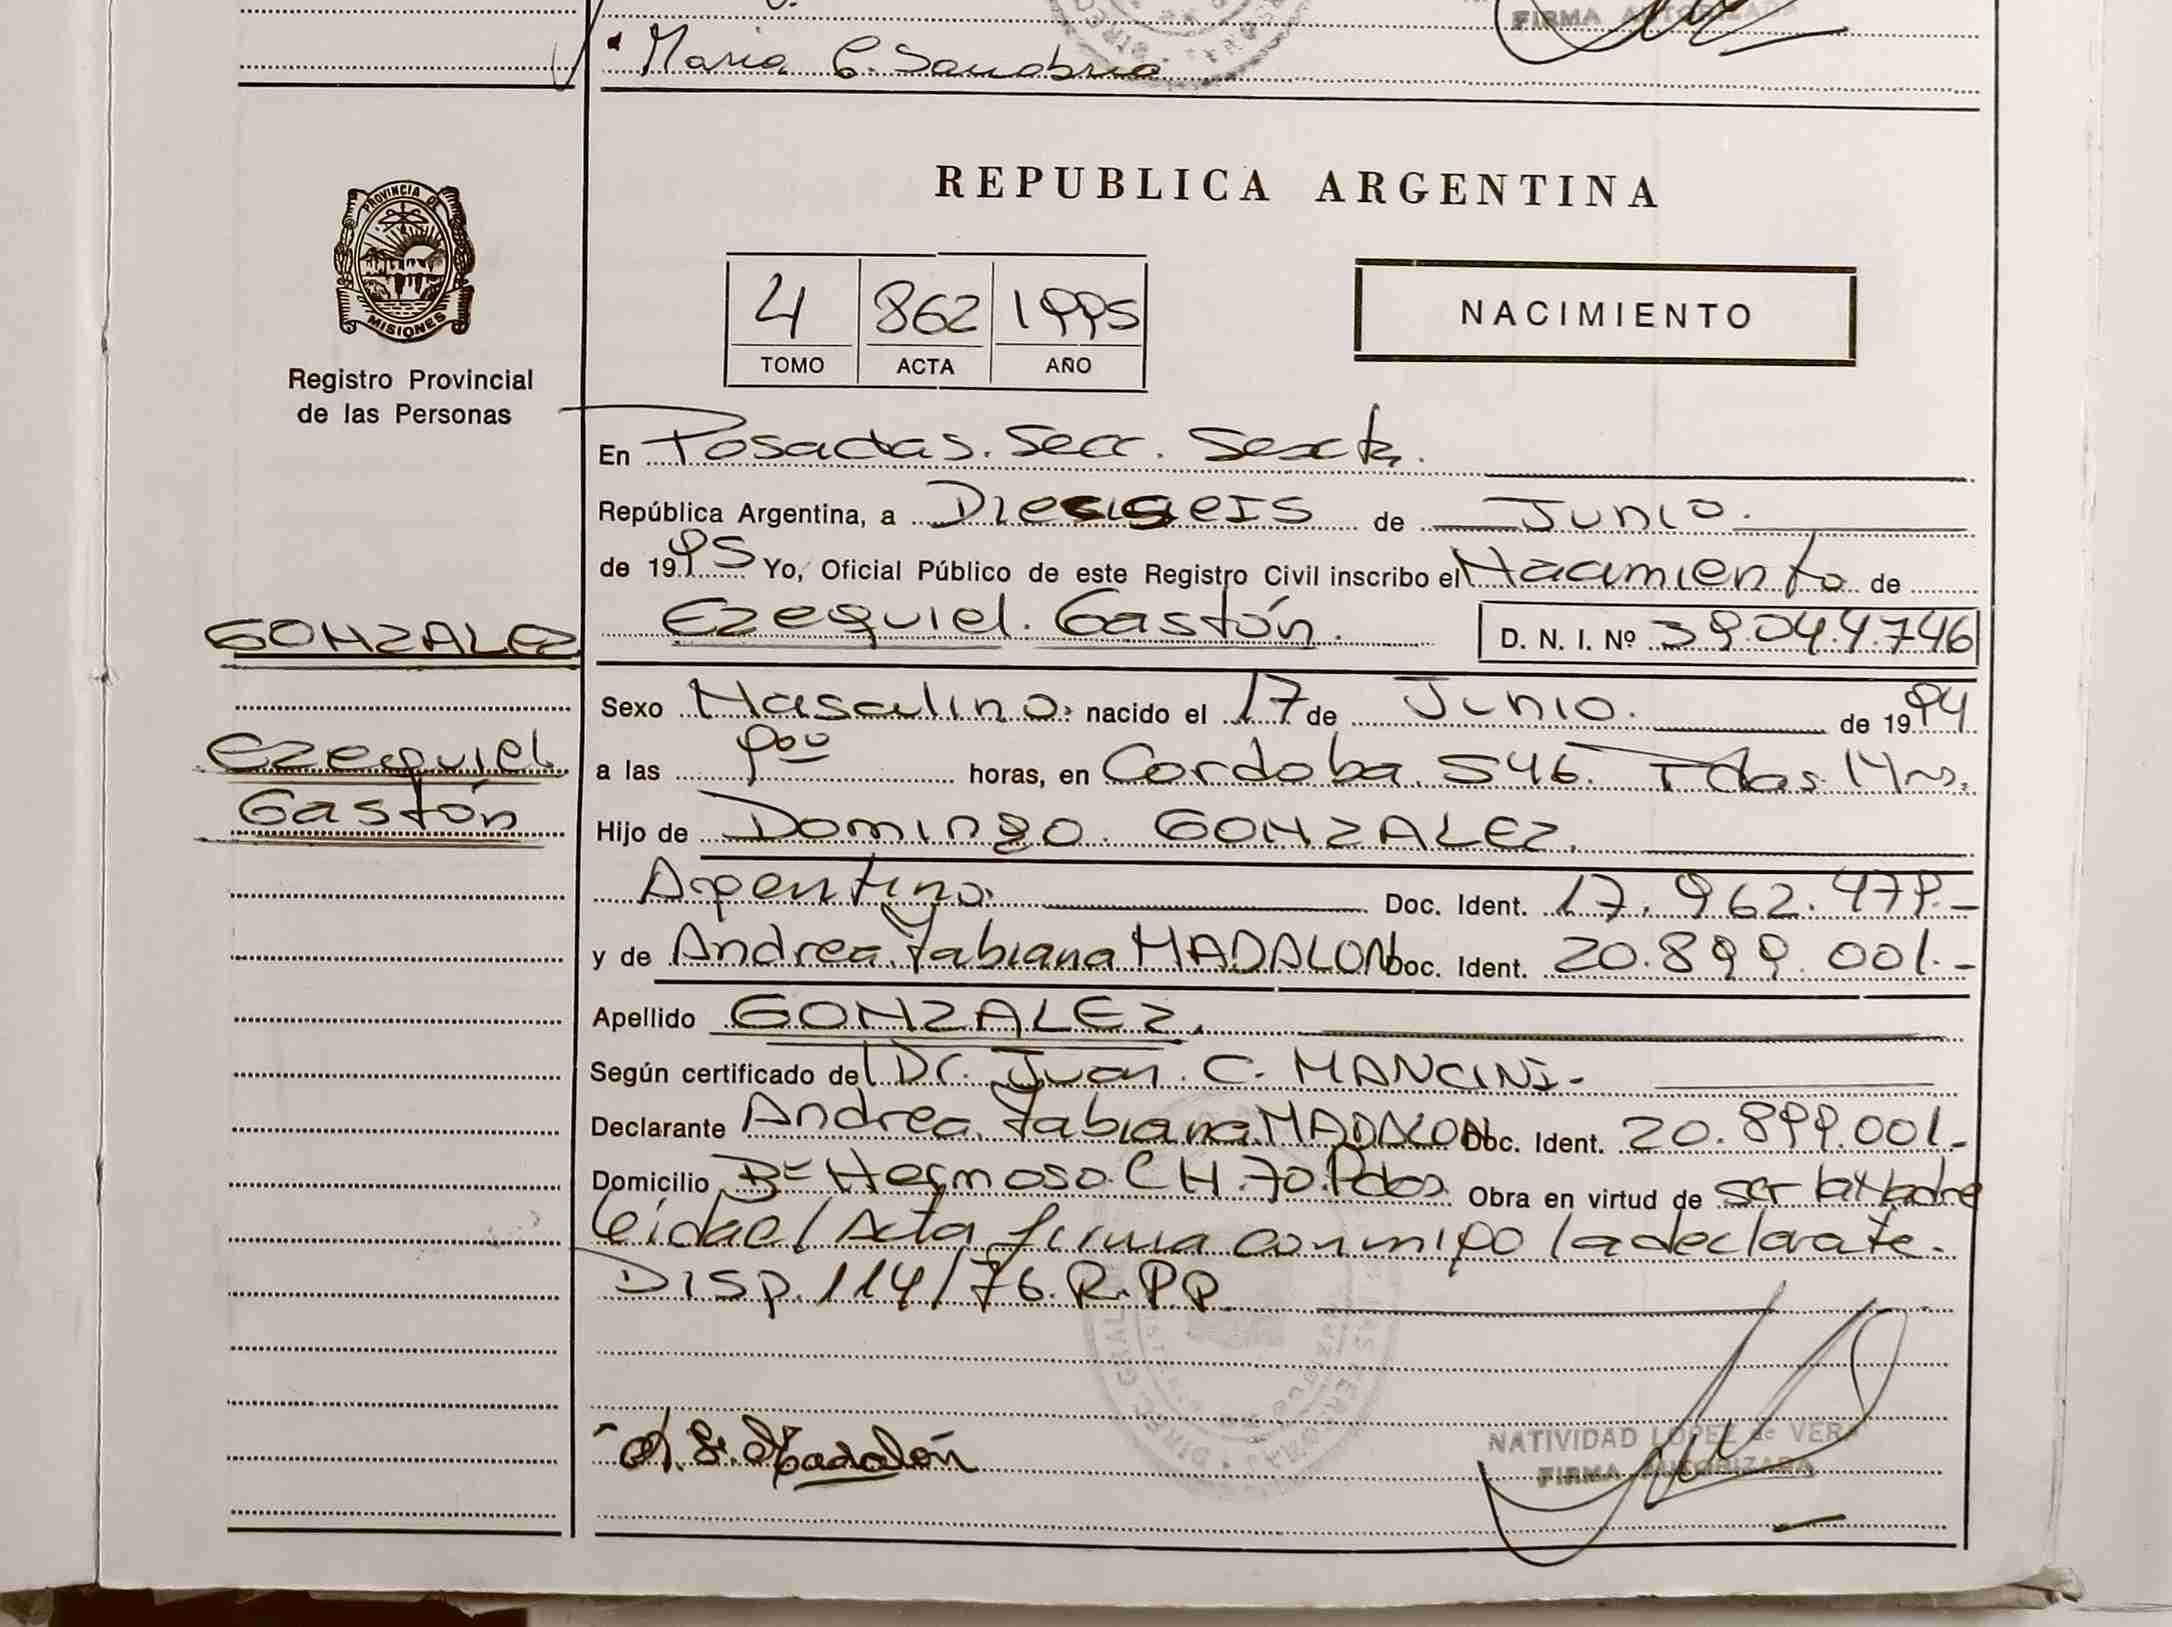 FIRMA AUTORIZADA
Maria C. Sanabria
PROVINCIA DE
MISIONES
Registro Provincial
de las Personas
REPUBLICA ARGENTINA
4 862 1995
TOMO ACTA AÑO
NACIMIENTO
En Posadas. Secc. Sexta.
República Argentina, a Dieciseis de Junio.
de 1995 Yo, Oficial Público de este Registro Civil inscribo el Nacimiento de
Ezequiel. Gastón. D. N. I. Nº 39.044.746
GONZALEZ
Ezequiel
Gastón
Sexo Masculino. nacido el 17 de Junio. de 1994
a las 9⁰⁰ horas, en Cordoba. 546. Pdas. Mns.
Hijo de Domingo. GONZALEZ.
Argentino. Doc. Ident. 17.962.479.-
y de Andrea. Fabiana MADALON Doc. Ident. 20.899.001.-
Apellido GONZALEZ.
Según certificado del Dr. Juan. C. MANCINI.-
Declarante Andrea. Fabiana MADALON Doc. Ident. 20.899.001.-
Domicilio Bº Hermoso. CH. 70. Pdas. Obra en virtud de ser la Madre
leida el Acta firma conmigo la declarate.
Disp. 114/76. R.P.P.
A. F. Madalón
NATIVIDAD LOPEZ de VERA
FIRMA AUTORIZADA